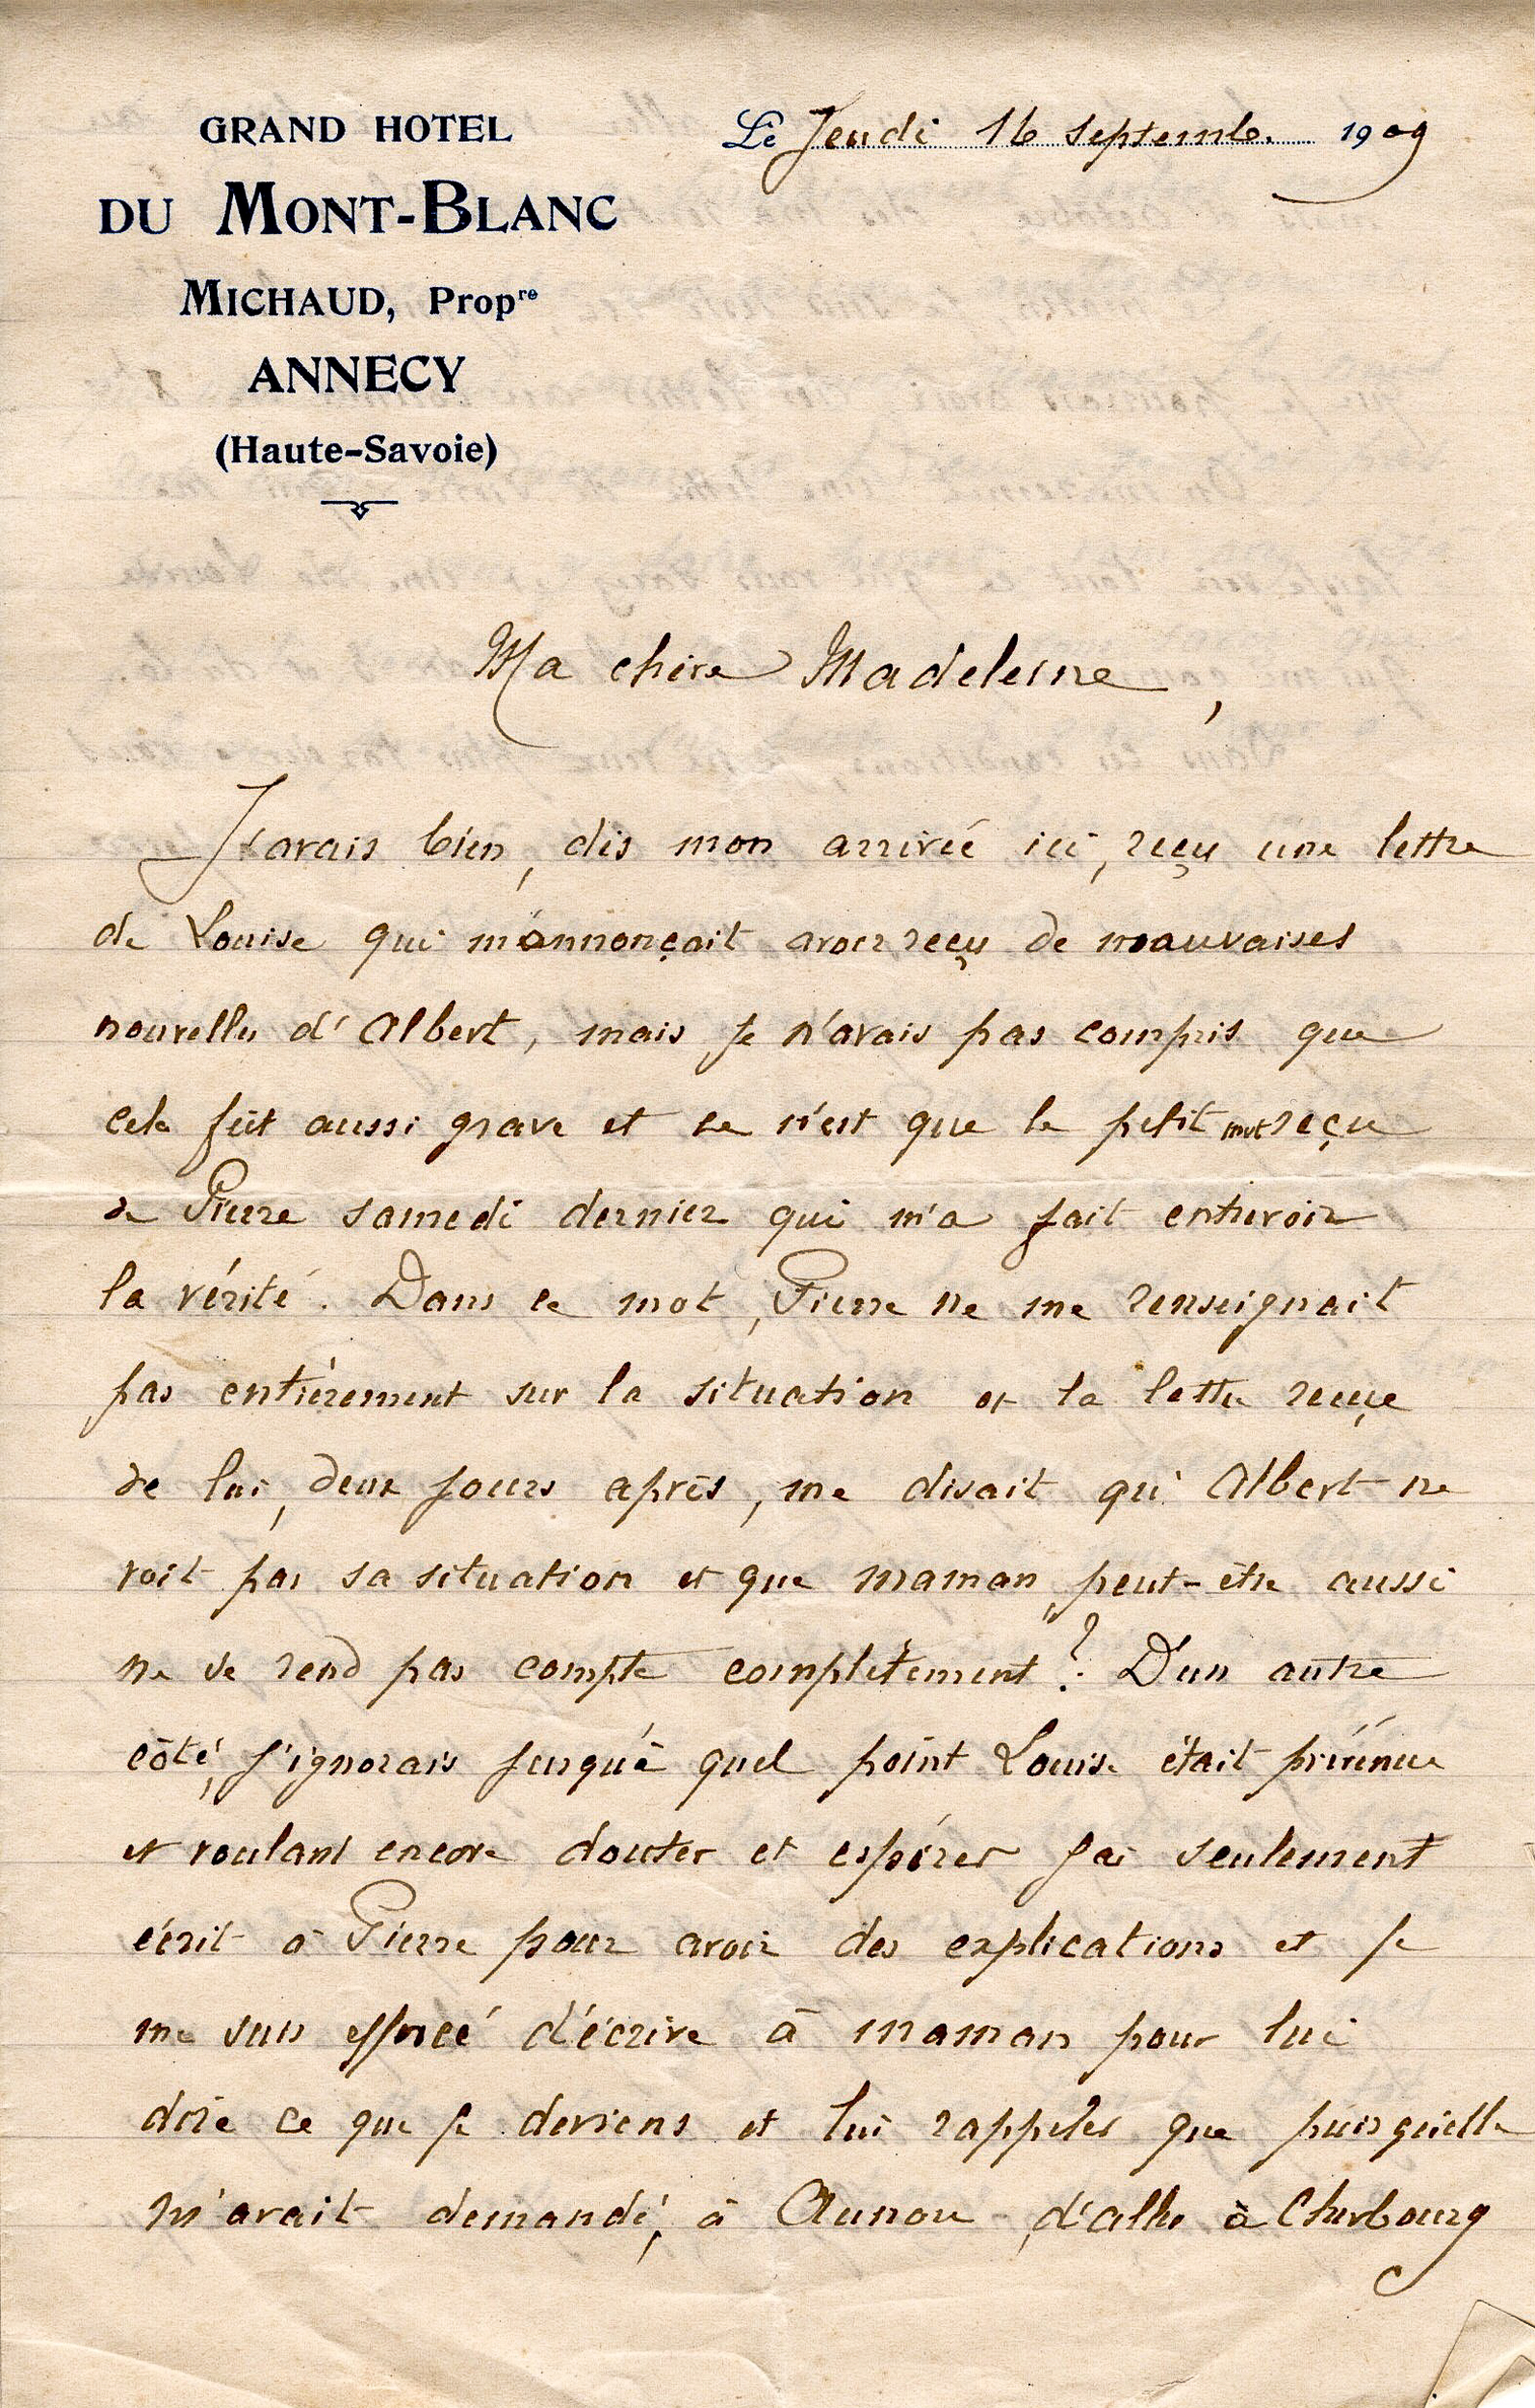 GRAND HOTEL
DU MONT-BLANC
MICHAUD, Propre
ANNECY
(Haute-Savoie)
Le Jeudi 16 Septemb. 1909
Ma chère Madeleine,
J'avais bien, dès mon arrivée ici, reçu une lettre
de Louise qui m'annonçait avoir reçu de mauvaises
nouvelles d'Albert, mais je n'avais pas compris que
cela fût aussi grave et ce n'est que le petit mot reçu
de Pierre samedi dernier qui m'a fait entrevoir
la vérité. Dans ce mot, Pierre ne me renseignait
pas entièrement sur la situation et la lettre reçue
de lui, deux jours après, me disait qu'Albert ne
voit pas sa situation et que maman "peut-être aussi
ne se rend pas compte complètement?. D'un autre
côté, j'ignorais jusqu'à quel point Louise était prévenue
et voulant encore douter et espérer j'ai seulement
écrit à Pierre pour avoir des explications et je
me suis efforcé d'écrire à maman pour lui
dire ce que je deviens et lui rappeler que puisqu'elle
m'avait demandé, à Aunou, d'aller à Cherbourg